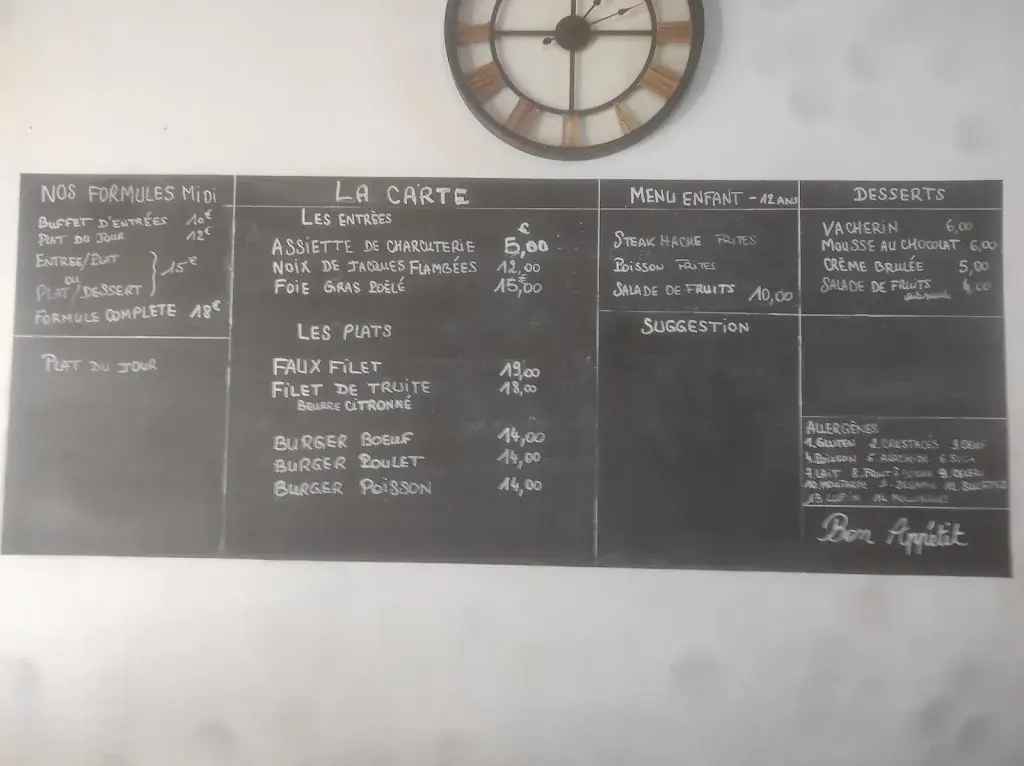 NOS FORMULES MiDi
BUFFET D'ENTRÉES 10€
PLAT DU JOUR 12€
ENTREE/PLAT
ou
PLAT/DESSERT
15€
FORMULE COMPLETE 18€
PLAT DU JOUR
LA CARTE
LES ENTRÉES
€
ASSIETTE DE CHARCUTERIE 5,00
NOIX DE JACQUES FLAMBÉES 12,00
FOIE GRAS POÊLÉ 15,00
LES PLATS
FAUX FILET 19,00
FILET DE TRUITE 18,00
BEURRE CITRONNÉ
BURGER BOEUF 14,00
BURGER POULET 14,00
BURGER POISSON 14,00
MENU ENFANT - 12 ANS
STEAK HACHE FRITES
POISSON FRITES
SALADE DE FRUITS 10,00
SUGGESTION
DESSERTS
VACHERIN 6,00
MOUSSE AU CHOCOLAT 6,00
CRÈME BRULÉE 5,00
SALADE DE FRUITS 4,00
ALLERGÈNES
1.GLUTEN 2.CRUSTACÉS 3.OEUF
4.POISSON 5.ARACHIDE 6.SOJA
7.LAIT 8.FRUIT À COQUE 9.CELERI
10.MOUTARDE SESAME 12.SULFITES
13.LUPIN 14.MOLLUSQUES
Bon Appétit